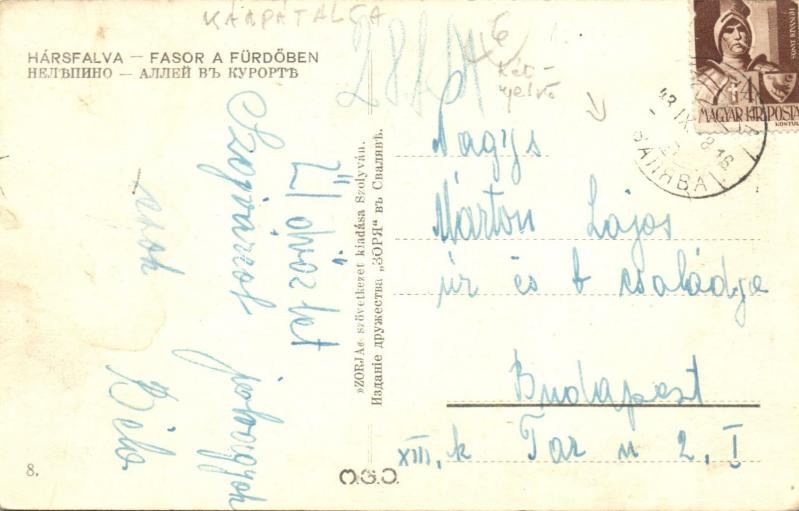 KÁRPÁTALJA
HÁRSFALVA — FASOR A FÜRDŐBEN
НЕЛѢПИНО — АЛЛЕЙ ВЪ КУРОРТѢ
Két-
nyelvű
43. IX.
8 16
СВАЛЯВА
4
MAGYAR KIR. POSTA
Üdvözlet
Béla
»ZORJA« szövetkezet kiadása Szolyván.
Изданіе дружества „ЗОРЯ“ въ Свалявѣ.
Nagys
Márton Lajos
úr és b családja
Budapest
XIII. k Tar u 2. I
8.
M.G.O.